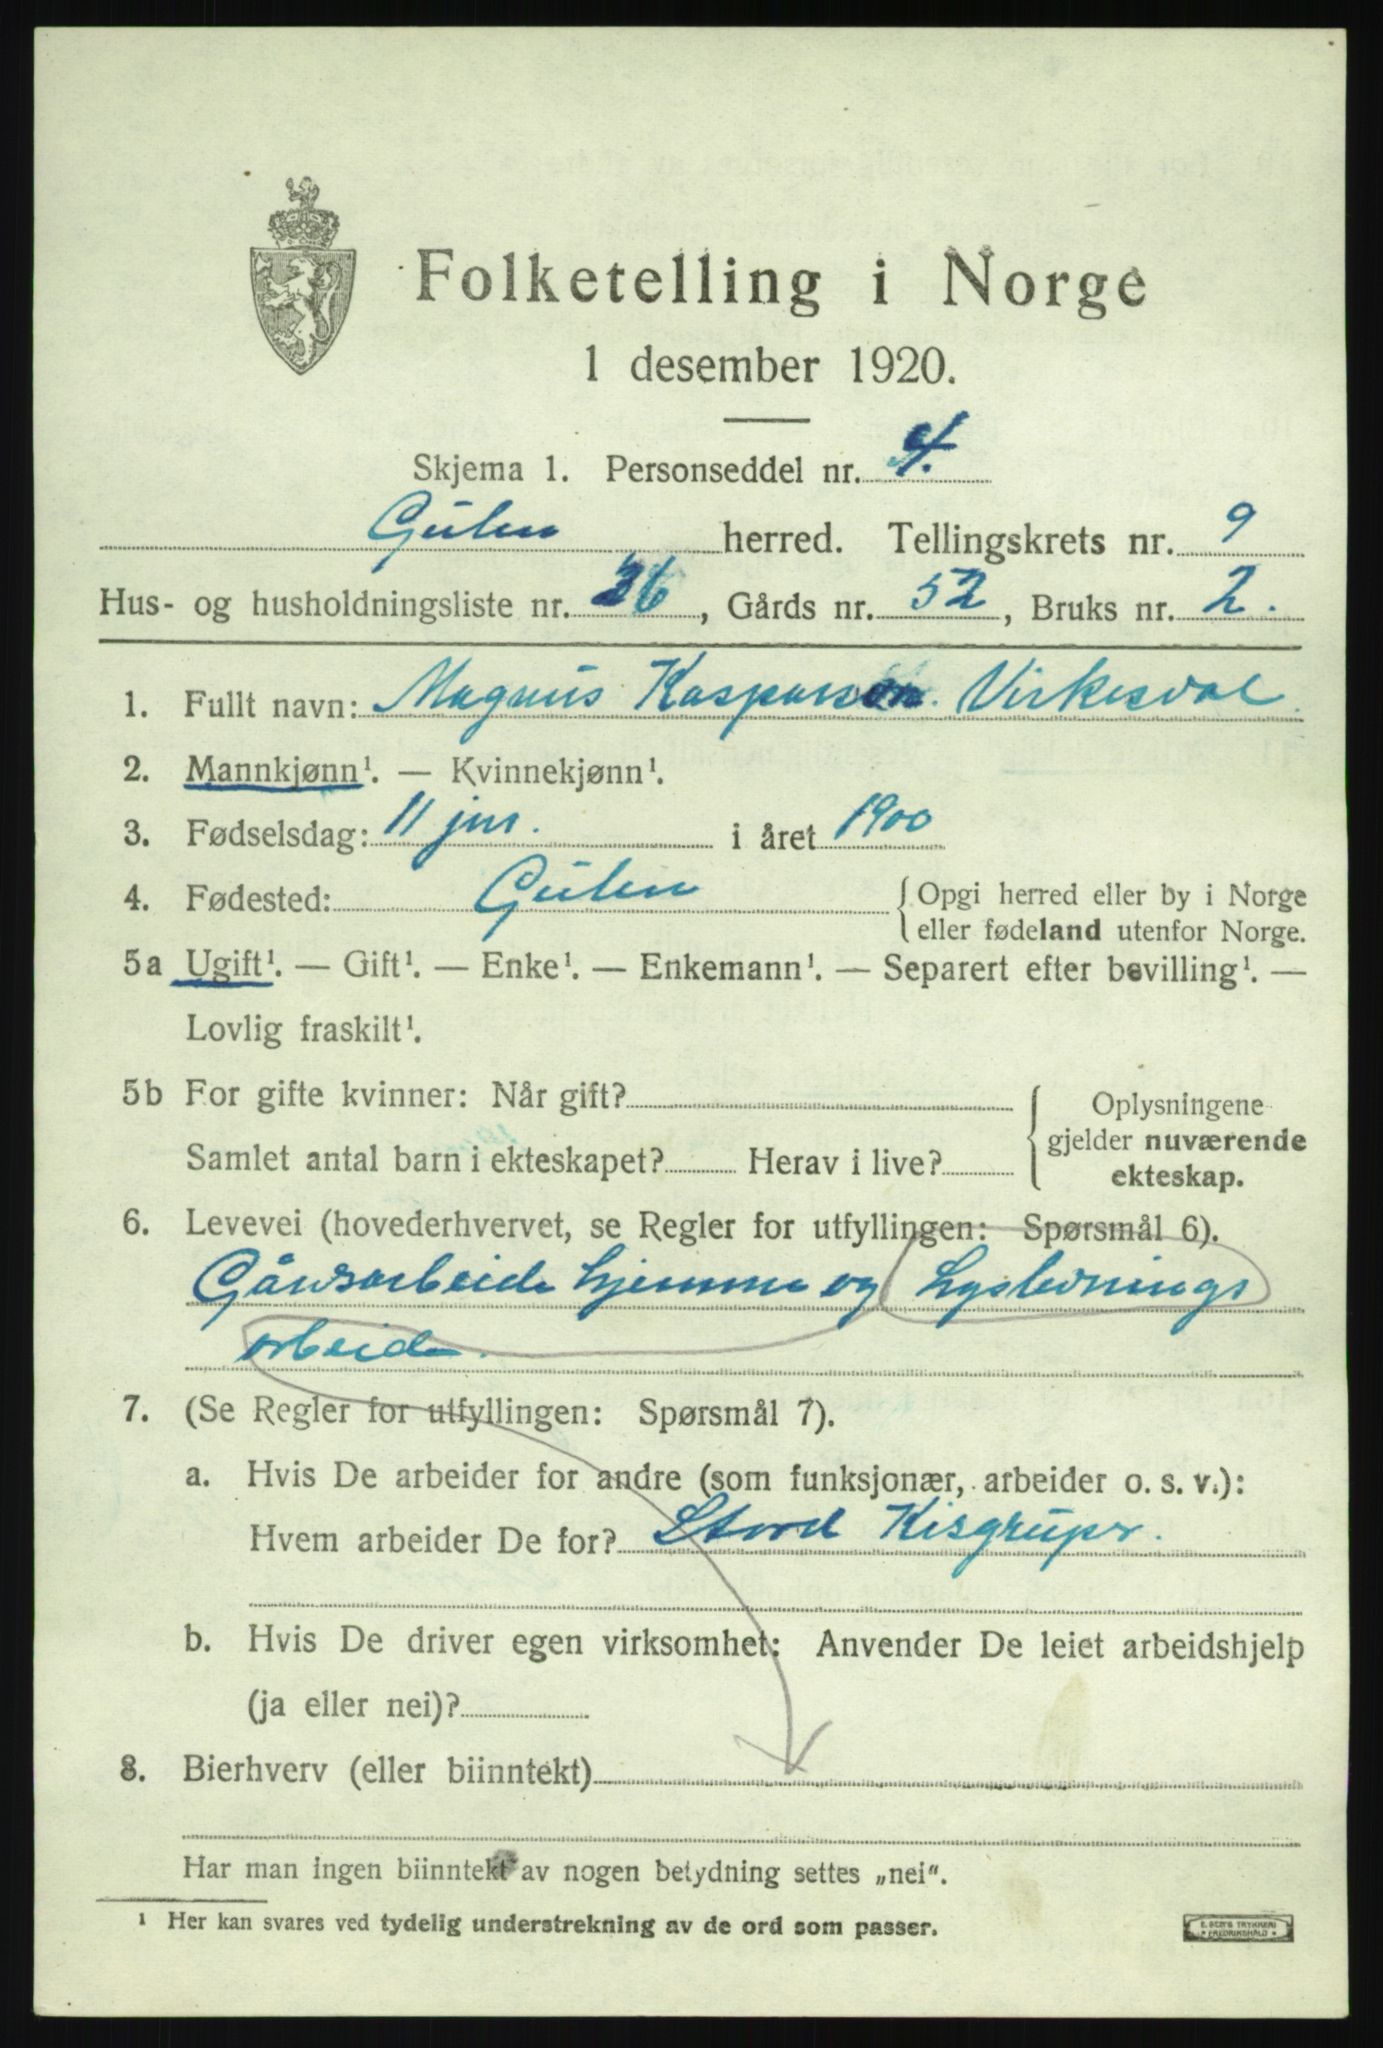 Folketelling i Norge
1 desember 1920.
Skjema 1. Personseddel nr. 4.
Gulen herred. Tellingskrets nr. 9
Hus- og husholdningsliste nr. 26, Gårds nr. 52, Bruks nr. 2.
1. Fullt navn: Magnus Kasparson. Virkesdal.
2. Mannkjønn¹. — Kvinnekjønn¹.
3. Fødselsdag: 11 jni. i året 1900
4. Fødested: Gulen { Opgi herred eller by i Norge
eller fødeland utenfor Norge.
5a Ugift¹. — Gift¹. — Enke¹. — Enkemann¹. — Separert efter bevilling¹. —
Lovlig fraskilt¹.
5b For gifte kvinner: Når gift? { Oplysningene
gjelder nuværende
Samlet antal barn i ekteskapet? Herav i live?
ekteskap.
6. Levevei (hovederhvervet, se Regler for utfyllingen: Spørsmål 6).
Gårdsarbeide hjemme og Lyslednings
arbeide.
7. (Se Regler for utfyllingen: Spørsmål 7).
a. Hvis De arbeider for andre (som funksjonær, arbeider o. s. v.):
Hvem arbeider De for? Stord Kisgruper.
b. Hvis De driver egen virksomhet: Anvender De leiet arbeidshjelp
(ja eller nei)?
8. Bierhverv (eller biinntekt)
Har man ingen biinntekt av nogen betydning settes „nei“.
¹ Her kan svares ved tydelig understrekning av de ord som passer.
E. SEM'S TRYKKERI
FREDRIKSHALD